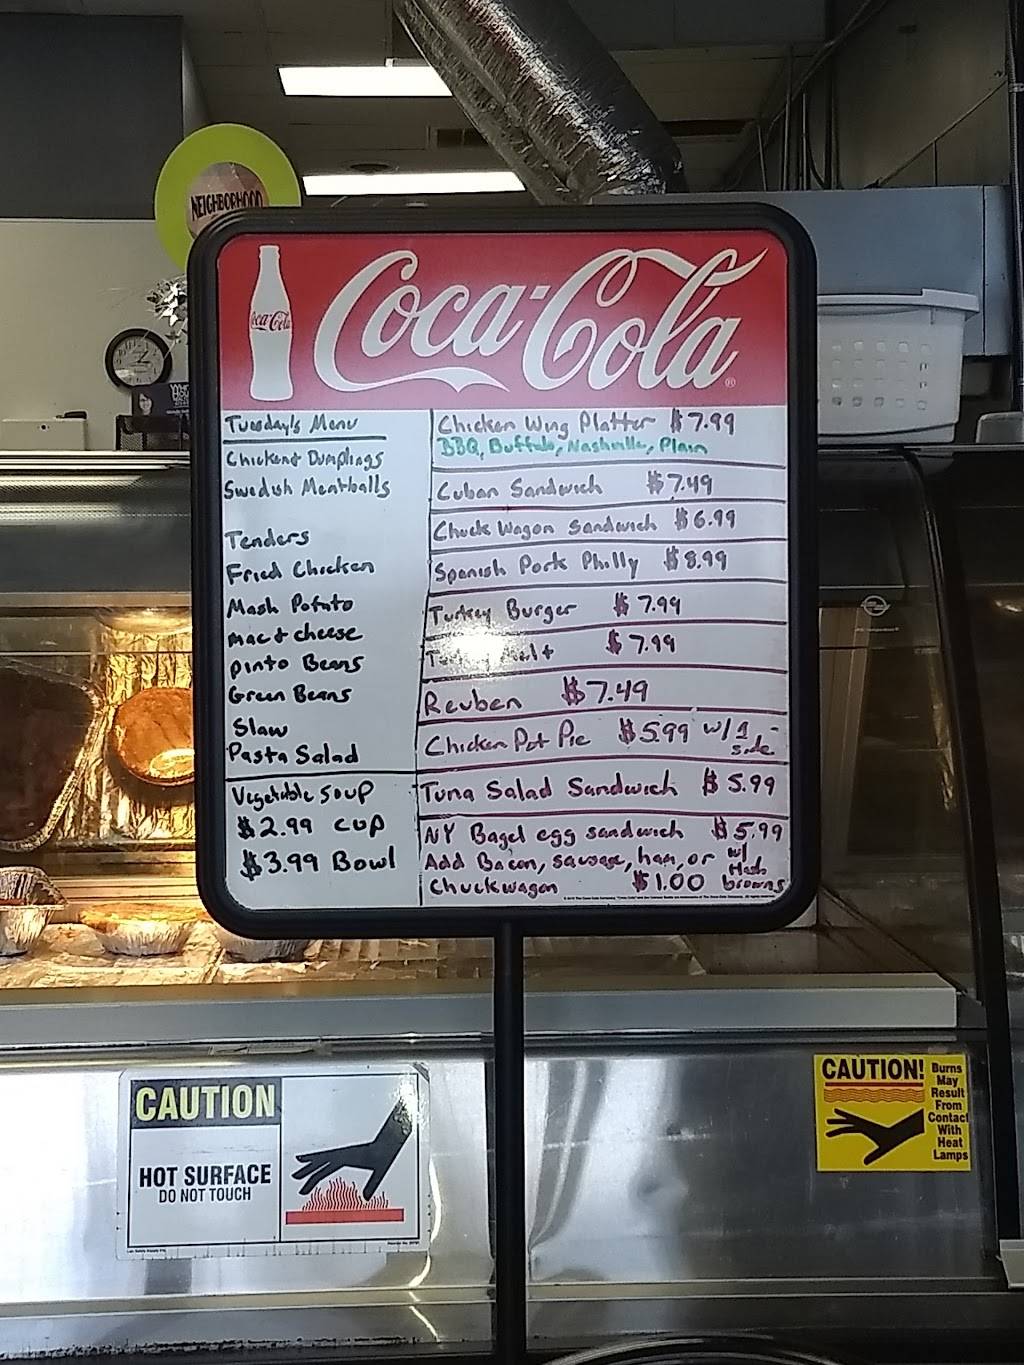 NEIGHBORHOOD
Coca-Cola
Coca-Cola
Tuesday's Menu
Chicken & Dumplings
Swedish Meatballs
Tenders
Fried Chicken
Mash Potato
mac & cheese
pinto Beans
Green Beans
Slaw
Pasta Salad
Vegetable Soup
$2.99 cup
$3.99 Bowl
Chicken Wing Platter $7.99
BBQ, Buffalo, Nashville, Plain
Cuban Sandwich $7.49
Chuck Wagon Sandwich $6.99
Spanish Pork Philly $8.99
Turkey Burger $7.99
$7.99
Reuben $7.49
Chicken Pot Pie $5.99 w/1 side
Tuna Salad Sandwich $5.99
NY Bagel egg sandwich $5.99
Add Bacon, sausage, ham, or w/ Hash
Chuckwagon $1.00 browns
CAUTION
HOT SURFACE
DO NOT TOUCH
CAUTION!
Burns
May
Result
From
Contact
With
Heat
Lamps